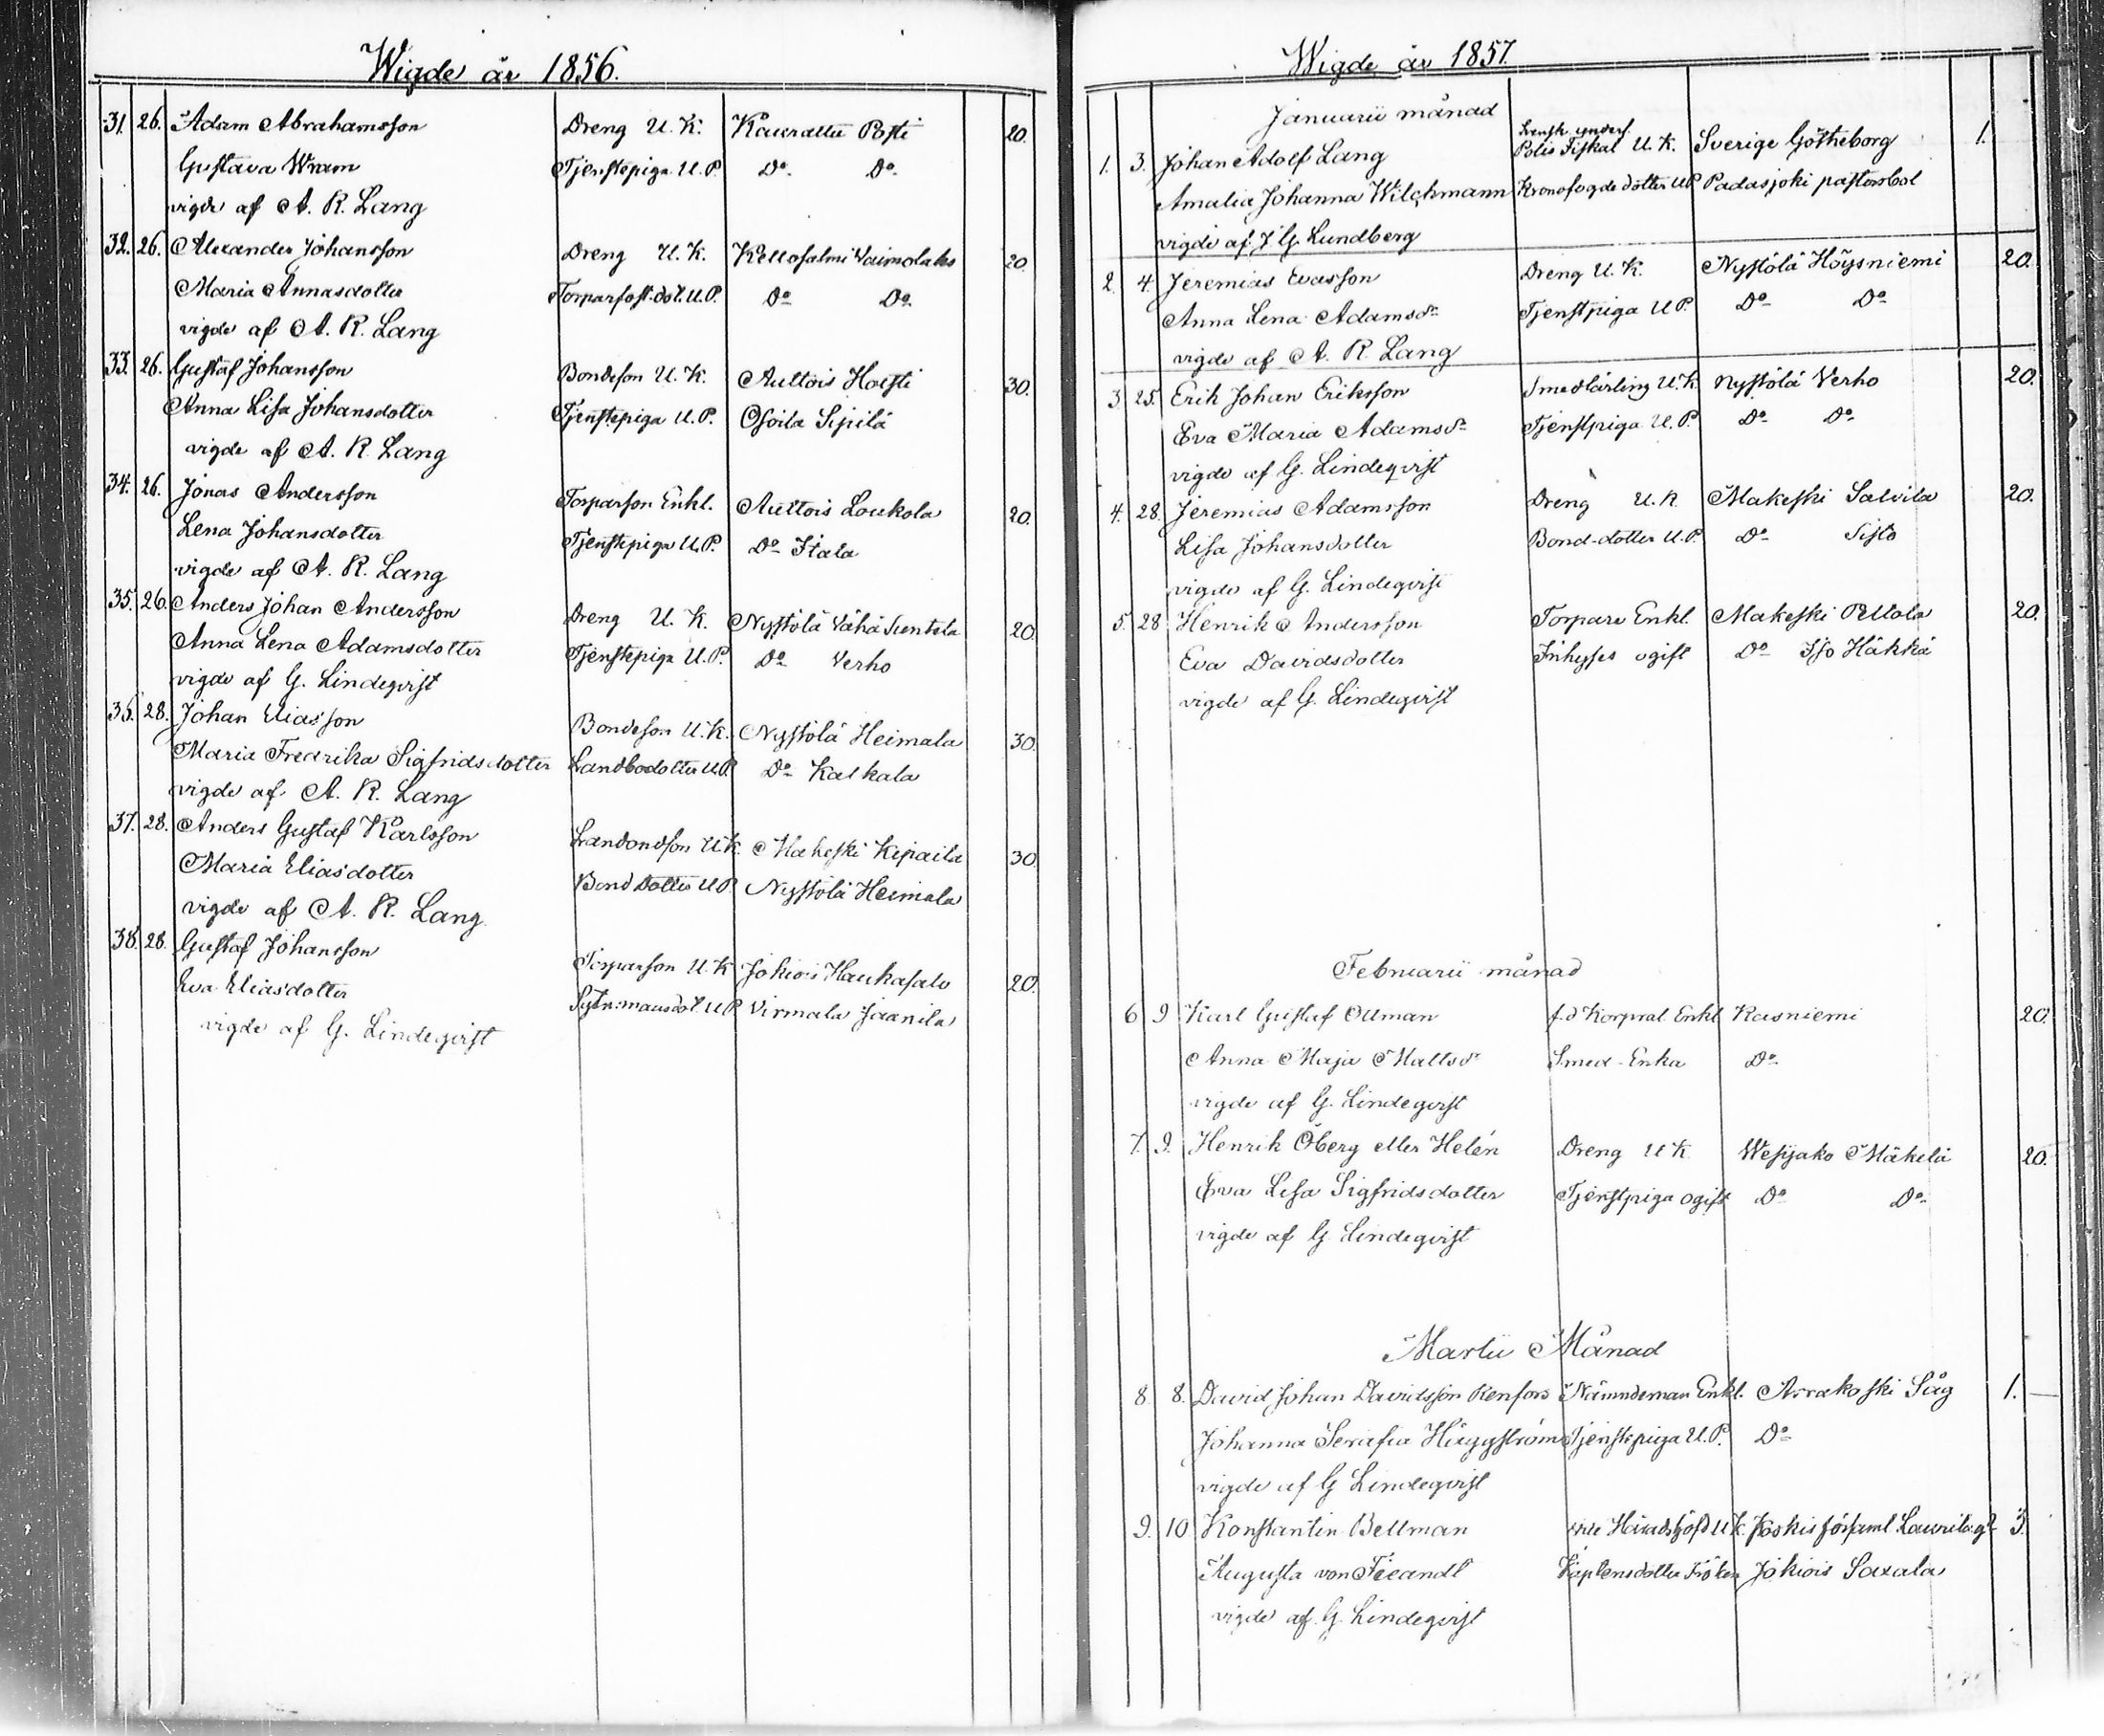 Wigde år 1856.
31. 26. Adam Abrahamsson Dreng U. K. Kaurattu Posti 20.
Gustava Wram Tjenstepiga U. P. Do Do
vigde af A. R. Lang
32. 26. Alexander Johansson Dreng U. K. Kellosalmi Vaimolaks 20.
Maria Annasdotter Torparfost.dot. U. P. Do Do
vigde af A. R. Lang
33. 26. Gustaf Johansson Bondeson U. K. Auttois Hoisti 30.
Anna Lisa Johansdotter Tjenstepiga U. P. Osoila Sipilä
vigde af A. R. Lang
34. 26. Jonas Andersson Torparson Enkl. Auttois Loukola 20.
Lena Johansdotter Tjenstepiga U. P. Do Itala
vigde af A. R. Lang
35. 26. Anders Johan Andersson Dreng U. K. Nystölä Vähä Suntola 20.
Anna Lena Adamsdotter Tjenstepiga U. P. Do Verho
vigde af G. Lindeqvist
36. 28. Johan Eliasson Bondeson U. K. Nystölä Heimala 30.
Maria Fredrika Sigfridsdotter Landbodotter U. P. Do Kalkala
vigde af A. R. Lang
37. 28. Anders Gustaf Karlsson U. K. Makeski Kipaila 30.
Maria Eliasdotter Bond dotter U. P. Nystölä Heimala
vigde af A. R. Lang
38. 28. Gustaf Johansson Torparson U. K. Jokiois Haukasalo 20.
Eva Eliasdotter U. P. Virmala Jaanila
vigde af G. Lindeqvist
Wigde år 1857.
Januarii månad
Svensk unders.
1. 3. Johan Adolf Lang Polis Fiskal U. K. Sverige Götheborg 1.
Amalia Johanna Wilchmann Kronofogde dotter U P Padasjoki pastorsbol
vigde af J G. Lundberg
2. 4. Jeremias Evasson Dreng U. K. Nystölä Höysniemi 20.
Anna Lena Adamsdr Tjenstpiga U P. Do Do
vigde af A. R. Lang
3. 25. Erik Johan Eriksson Smedlärling U. K. Nystölä Verho 20.
Eva Maria Adamsdr Tjenstpiga U. P. Do Do
vigde af G. Lindeqvist
4. 28. Jeremias Adamsson Dreng U. K. Makeski Salvila 20.
Lisa Johansdotter Bond-dotter U. P. Do Sisto
vigde af G. Lindeqvist
5. 28 Henrik Andersson Torpare Enkl. Makeski Ollola 20.
Eva Davidsdotter Inhyses ogift Do Iso Häkkä
vigde af G. Lindeqvist
Februarii månad
6 9 Karl Gustaf Ollman f.d Korpral Enkl Kasniemi 20.
Anna Maja Mattsdr Smed-Enka Do
vigde af G. Lindeqvist
7. 9. Henrik Öberg eller Helén Dreng U K Wesijako Mäkelä 20.
Eva Lisa Sigfridsdotter Tjenstpiga ogift Do Do
vigde af G Lindeqvist
Martii Månad
8 8. David Johan Davidsson Renfors Nämndeman Enkl. Arrakoski Såg 1.
Johanna Serafia Häggström Tjenstepiga U. P. Do
vigde af G Lindeqvist
9. 10 Konstantin Bellman vice Häradshöfd U K. Koskis Laurila 3.
Augusta von Fieandt Kaptensdotter Fröken Jokiois Saxala
vigde af G. Lindeqvist